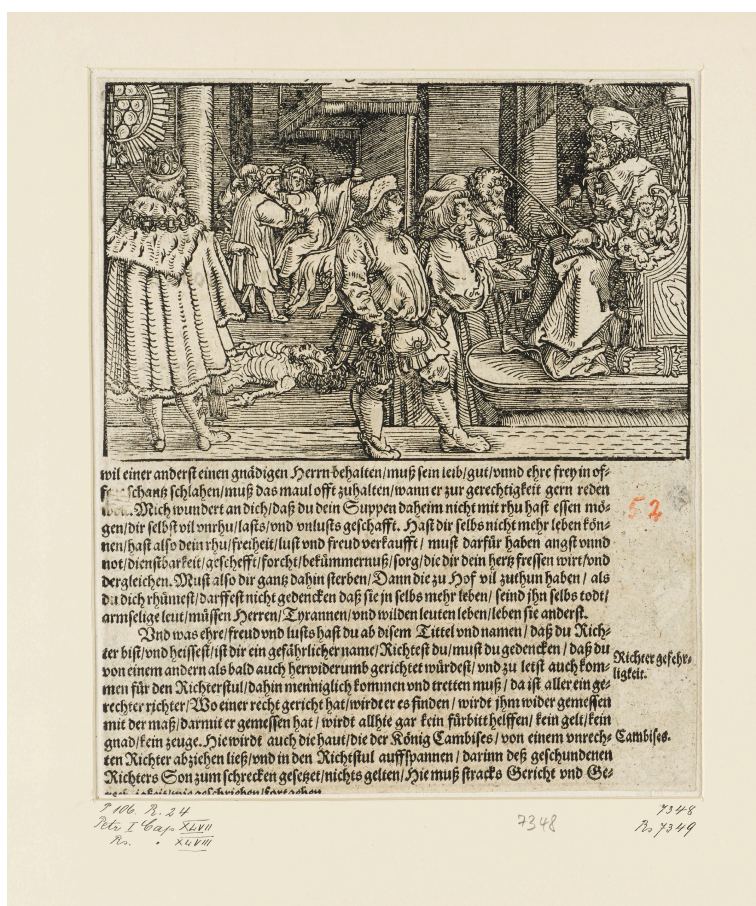 wil einer anderst einen gnädigen Herrn behalten/muß sein leib/gut/vnnd ehre frey in of-
schantz schlahen/muß das maul offt zuhalten/wann er zur gerechtigkeit gern reden
Mich wundert an dich/daß du dein Suppen daheim nicht mit rhu hast essen mö-
gen/dir selbst vil vnrhu/lasts/vnd vnlusts geschafft. Hast dir selbs nicht mehr leben kön-
nen/hast also dein rhu/freiheit/lust vnd freud verkaufft/ must darfür haben angst vnnd
not/dienstbarkeit/geschefft/forcht/bekümmernuß/sorg/die dir dein hertz fressen wirt/vnd
dergleichen. Must also dir gantz dahin sterben/Dann die zu Hof vil zuthun haben/ als
du dich rhümest/darffest nicht gedencken daß sie jn selbs mehr leben/ seind jhn selbs todt/
armselige leut/müssen Herren/Tyrannen/vnd wilden leuten leben/leben sie anderst.
Vnd was ehre/freud vnd lusts hast du ab disem Tittel vnd namen/ daß du Rich-
ter bist/vnd heissest/ist dir ein gefährlicher name/Richtest du/must du gedencken/ daß du
von einem andern als bald auch herwiderumb gerichtet würdest/ vnd zu letst auch kom-
men für den Richterstul/dahin menniglich kommen vnd tretten muß/ da ist aller ein ge-
rechter richter/Wo einer recht gericht hat/wirdt er es finden/ wirdt jhm wider gemessen
mit der maß/darmit er gemessen hat/ wirdt allhie gar kein fürbitt helffen/ kein gelt/kein
gnad/kein zeuge. Hie wirdt auch die haut/die der König Cambises/ von einem vnrech-
ten Richter abziehen ließ/vnd in den Richtstul auffspannen/ darinn deß geschundenen
Richters Son zum schrecken gesetzet/nichts gelten/Hie muß stracks Gericht vnd Ge-
Richter gefehr-
ligkeit.
Cambises.
52
P 106. R. 24
Petr. I Cap XLVII
Rs. " XLVIII
7348
7348
Rs 7349